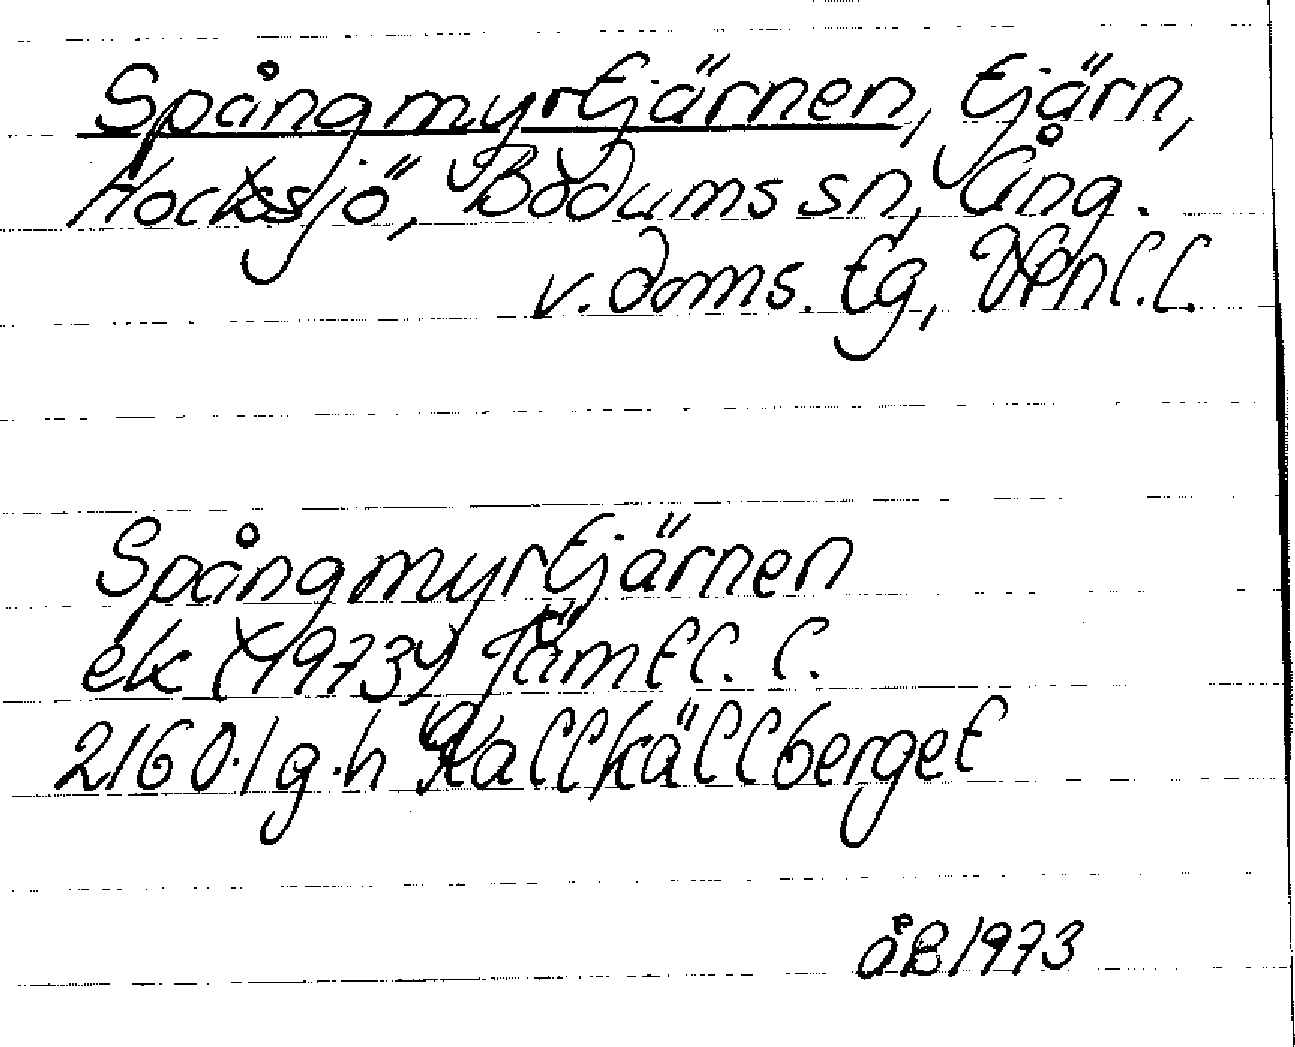 Spångmyrtjärnen, tjärn,
Hocksjö, Bodums sn, Ång.
v. doms. tg, Vbnl.l.
Spångmyrtjärnen
ek (1973) Jämtl. l.
2160.1 g.h Kallkällberget
åB 1973